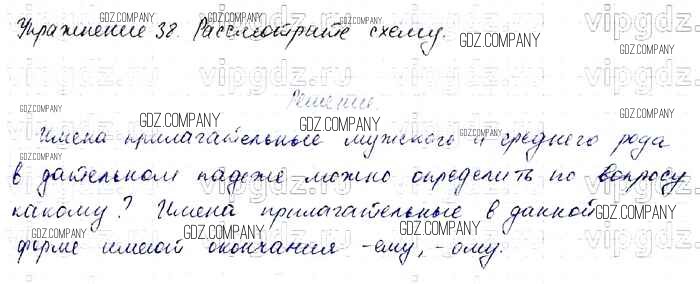 Упражнение 38. Рассмотрите схему.
Решение.
Имена прилагательные мужского и среднего рода
в дательном падеже можно определить по вопросу
какому? Имена прилагательные в данной
форме имеют окончания -ему, -ому.